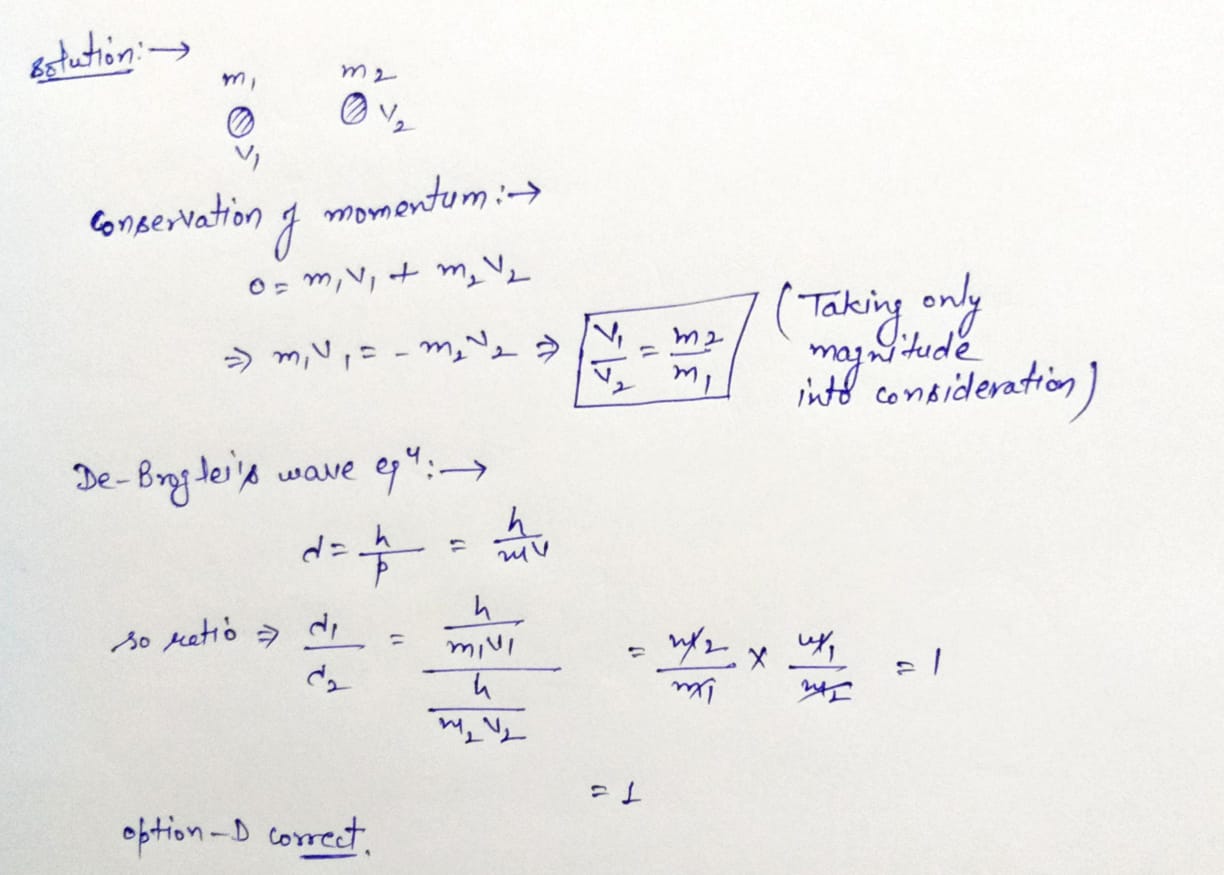 Solution:→
m₁ m₂
V₁ V₂
Conservation of momentum:→
0 = m₁V₁ + m₂V₂
⇒ m₁V₁ = - m₂V₂ ⇒ V₁/V₂ = m₂/m₁ (Taking only
magnitude
into consideration)
De-Broglei's wave eqⁿ:→
d = h/p = h/mv
so ratio ⇒ d₁/d₂ = (h/m₁v₁)/(h/m₂V₂) = m₂/m₁ × m₁/m₂ = 1
= 1
option-D correct.